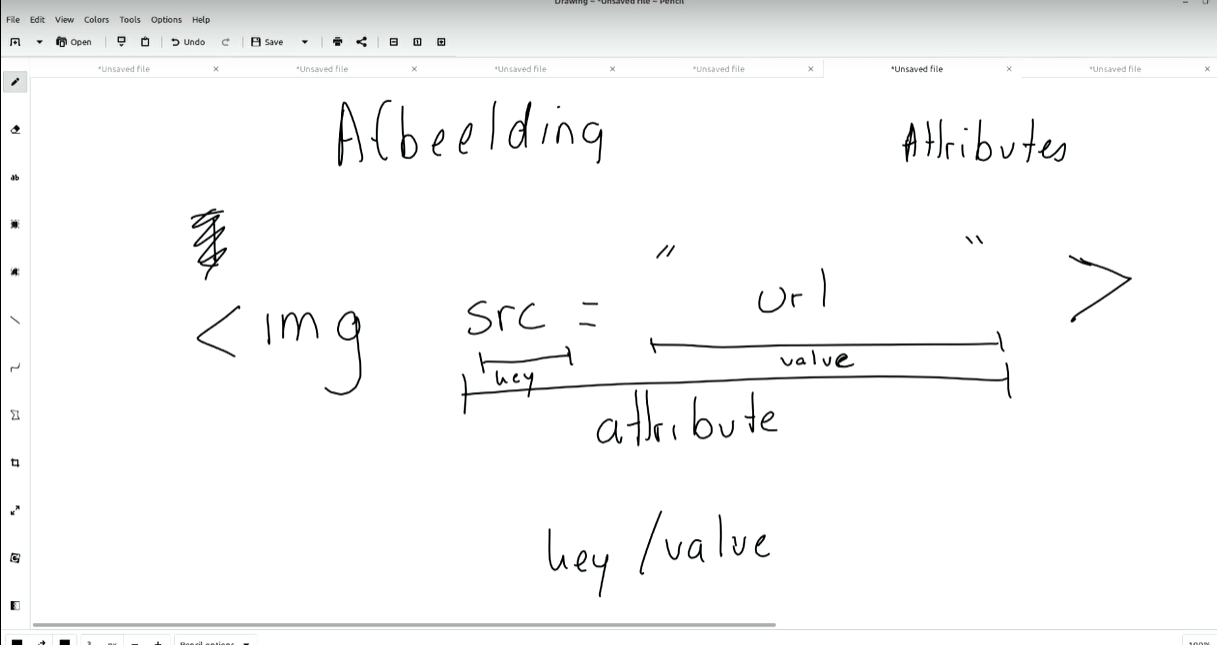 Drawing – *Unsaved file – Pencil
File Edit View Colors Tools Options Help
Open Undo Save
*Unsaved file *Unsaved file *Unsaved file *Unsaved file *Unsaved file *Unsaved file
Afbeelding Attributes
" "
<img src = url >
key value
attribute
key/value
Pencil options 100%